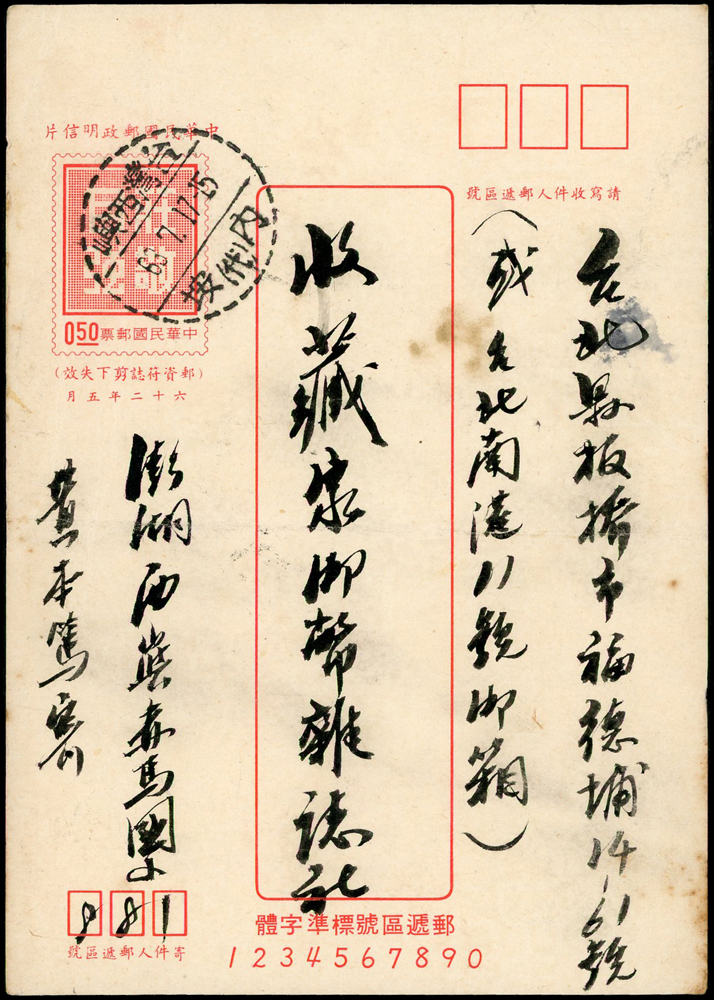 中華民國郵政明信片
0.50 中華民國郵票
(郵資符誌剪下失效)
六十二年五月
台灣西嶼
69.7.17.15
內垵代
請寫收件人郵遞區號
台北縣板橋市福德埔14-61號
(或台北南港11號郵箱)
收藏家郵幣雜誌社
澎湖西嶼赤馬國小
黃本篤寄
881
寄件人郵遞區號
郵遞區號標準字體
1234567890